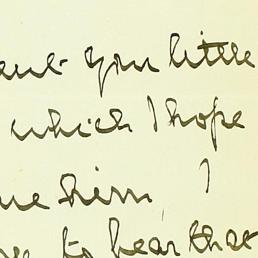 you little
which I hope
him, I
to hear that